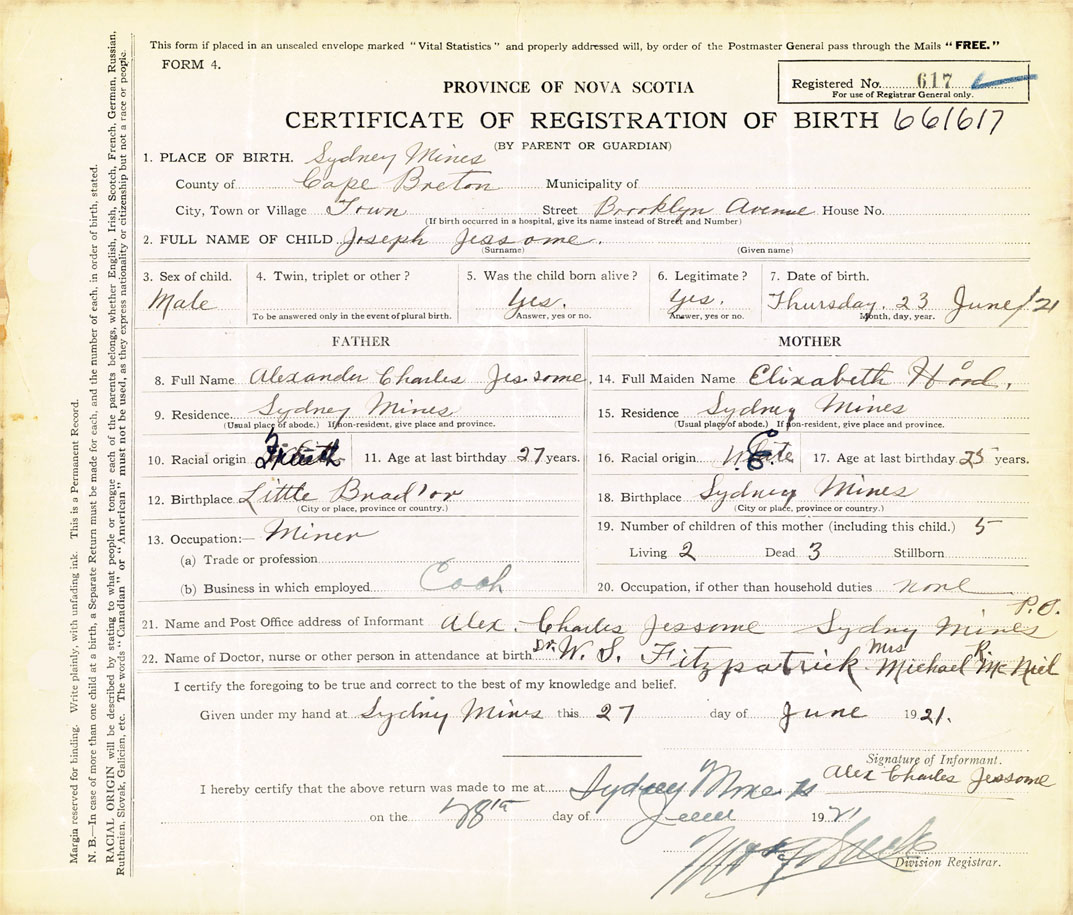 This form if placed in an unsealed envelope marked "Vital Statistics" and properly addressed will, by order of the Postmaster General pass through the Mails "FREE."
FORM 4.
Registered No. 617
For use of Registrar General only.
PROVINCE OF NOVA SCOTIA
CERTIFICATE OF REGISTRATION OF BIRTH 661617
(BY PARENT OR GUARDIAN)
1. PLACE OF BIRTH. Sydney Mines
County of Cape Breton Municipality of
City, Town or Village Town Street Brooklyn Avenue House No.
(If birth occurred in a hospital, give its name instead of Street and Number)
2. FULL NAME OF CHILD Joseph Jessome.
(Surname) (Given name)
3. Sex of child. 4. Twin, triplet or other? 5. Was the child born alive? 6. Legitimate? 7. Date of birth.
Male Yes. Yes. Thursday. 23 June/21
To be answered only in the event of plural birth. Answer, yes or no. Answer, yes or no. Month, day, year.
FATHER MOTHER
8. Full Name Alexander Charles Jessome, 14. Full Maiden Name Elizabeth
9. Residence Sydney Mines 15. Residence Sydney Mines
(Usual place of abode.) If non-resident, give place and province. (Usual place of abode.) If non-resident, give place and province.
10. Racial origin 11. Age at last birthday 27 years. 16. Racial origin 17. Age at last birthday 25 years.
12. Birthplace Little Brad'or 18. Birthplace Sydney Mines
(City or place, province or country.) (City or place, province or country.)
13. Occupation:— Miner 19. Number of children of this mother (including this child.) 5
(a) Trade or profession Living 2 Dead 3 Stillborn
(b) Business in which employed 20. Occupation, if other than household duties none
21. Name and Post Office address of Informant Alex. Charles Jessome Sydney Mines P.O.
22. Name of Doctor, nurse or other person in attendance at birth. Dr. W. S. Fitzpatrick. Mrs Michael R. McNeil
I certify the foregoing to be true and correct to the best of my knowledge and belief.
Given under my hand at Sydney Mines this 27 day of June 1921.
Signature of Informant.
Alex Charles Jessome
I hereby certify that the above return was made to me at Sydney Mines
on the 28th day of June 1921
Division Registrar.
Margin reserved for binding. Write plainly, with unfading ink. This is a Permanent Record.
N. B.—In case of more than one child at a birth, a Separate Return must be made for each, and the number of each, in order of birth, stated.
RACIAL ORIGIN will be described by stating to what people or tongue each of the parents belongs, whether English, Irish, Scotch, French, German, Russian,
Ruthenian, Slovak, Galician, etc. The words "Canadian" or "American" must not be used, as they express nationality or citizenship but not a race or people.